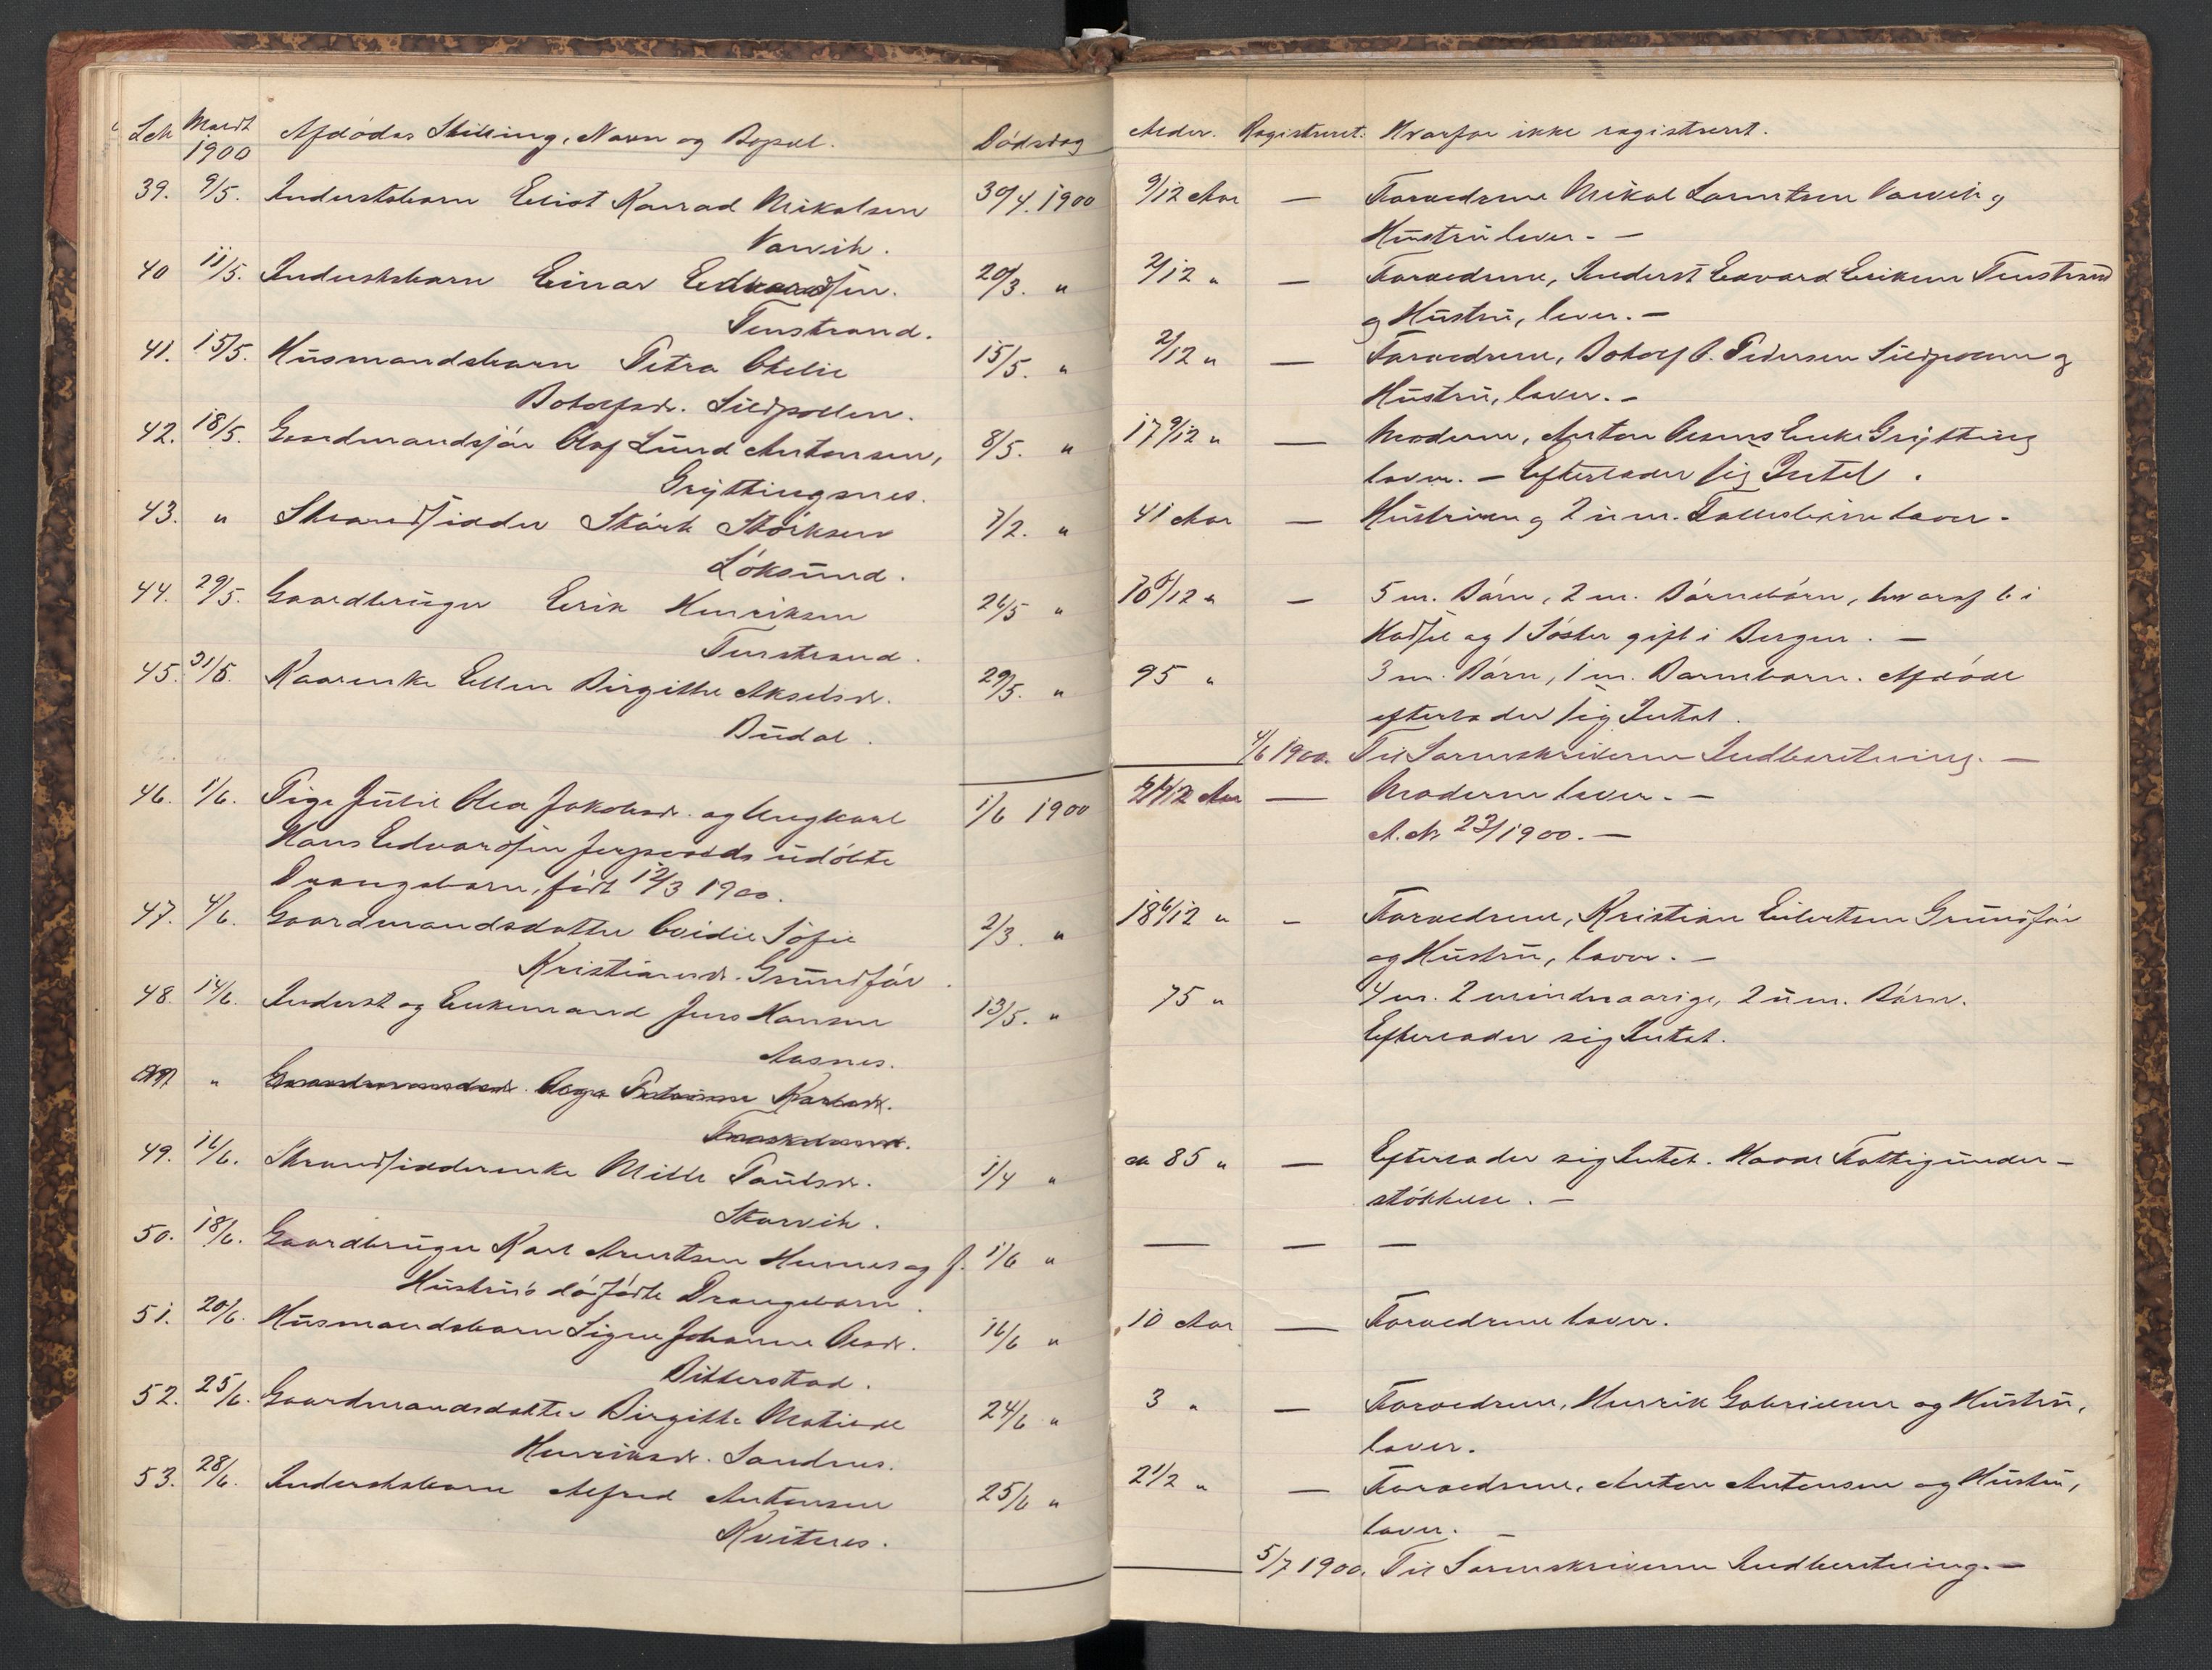 Løb Meldt 1900 Afdødes Stilling, Navn og Bopæl. Dødsdag Alder. Registreret. Hvorfor ikke registreret.
39. 9/5. Inderstsbarn Eliot Konrad Mikalsen 30/4. 1900 9/12 Aar — Forældrene Mikal Lorentsen Varvik og
Varvik. Hustru lever. —
40 11/5. Inderstsbarn Einar Edvardsen. 20/3. " 2/12 " — Forældrene, Inderst Edvard Eriksen Finstrand
Finstrand. og Hustru, lever. —
41. 15/5. Husmandsbarn Petra Otelie 15/5. " 2/12 " — Forældrene, Botolf O. Pedersen Sildpollen og
Botolfsdr. Sildpollen. Hustru, lever. —
42. 18/5. Gaardmandssøn Olaf Lund Antonsen, 8/5. " 17 9/12 " — Moderen, Anton Enke Grytting
Gryttingsnes. lever. — Efterlader sig Intet.
43. " Strandsidder Størk Størksen 7/2. " 41 Aar — Hustruen og 2 um. Fællesbørn lever.
Løksund.
44. 29/5. Gaardbruger Erik Henriksen 26/5 " — 5 m. Børn, 2 m. Børnebørn, hvoraf 6 i
Finstrand. Hadsel og 1 Søster gift i Bergen. —
45. 31/5. Kaarenke Ellen Birgitte Akselsdr. 29/5. " 95 " 3 m. Børn, 1 m. Barnebarn. Afdøde
Budal. efterlader sig Intet.
4/6 1900. Til Sorenskriveren Indberetning. —
46. 1/6. Pige Julie Olea Jakobsdr. og Ungkarl 1/6 1900 — Moderen lever. —
Hans Edvardsen Jerpvolds udøbte A. № 23/1900. —
Drengebarn, født 12/3 1900.
47. 4/6. Gaardmandsdatter Ovidie Sofie 2/3. " 18 6/12 " — Forældrene, Kristian Eilertsen Grundfør
Kristiansdr. Grundfør. og Hustru, lever. —
48. 14/6. Inderst og Enkemand Jens Hansen 13/5. " 75 " 4 m. 2 mindreaarige, 2 um. Børn.
Aasnes. Efterlader sig Intet.
" Olga Karlsdr.
49. 16/6. Strandsidderenke Mille Paulsdr. 1/4 " ca 85 " — Efterlader sig Intet. Havde Fattigunder-
Storvik. støttelse. —
50. 18/6. Gaardbruger Karl Arntsen Hennes og f. 1/6 " — — —
Hustrus dødfødte Drengebarn.
51. 20/6. Husmandsbarn Signe Johanne Olesdr. 16/6 " 10 Aar — Forældrene lever.
Bitterstad.
52. 25/6. Gaardmandsdatter Birgitte Matilde 24/6 " 3 " — Forældrene, Henrik Gabrielsen og Hustru,
Henriksdr. Sandnes. lever.
53. 28/6. Inderstsbarn Alfred Antonsen 25/6 " 2 1/2 " — Forældrene, Anton Antonsen og Hustru,
Kvitnes. lever. —
5/7 1900. Til Sorenskriveren Indberetning. —